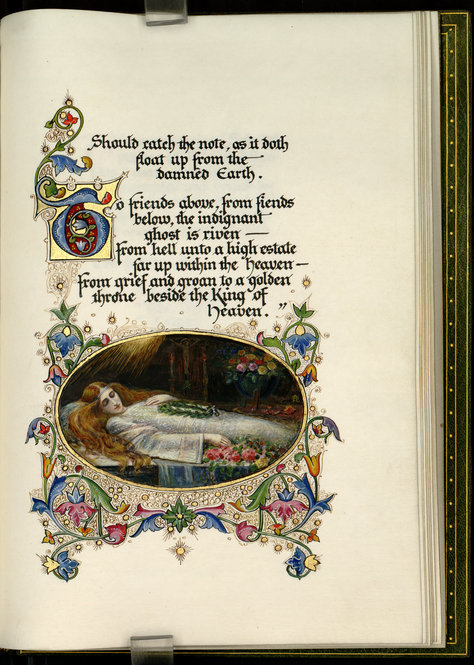 Should catch the note, as it doth
float up from the
damned Earth.
To friends above, from fiends
below, the indignant
ghost is riven —
From hell unto a high estate
far up within the Heaven —
From grief and groan to a golden
throne beside the King of
Heaven."